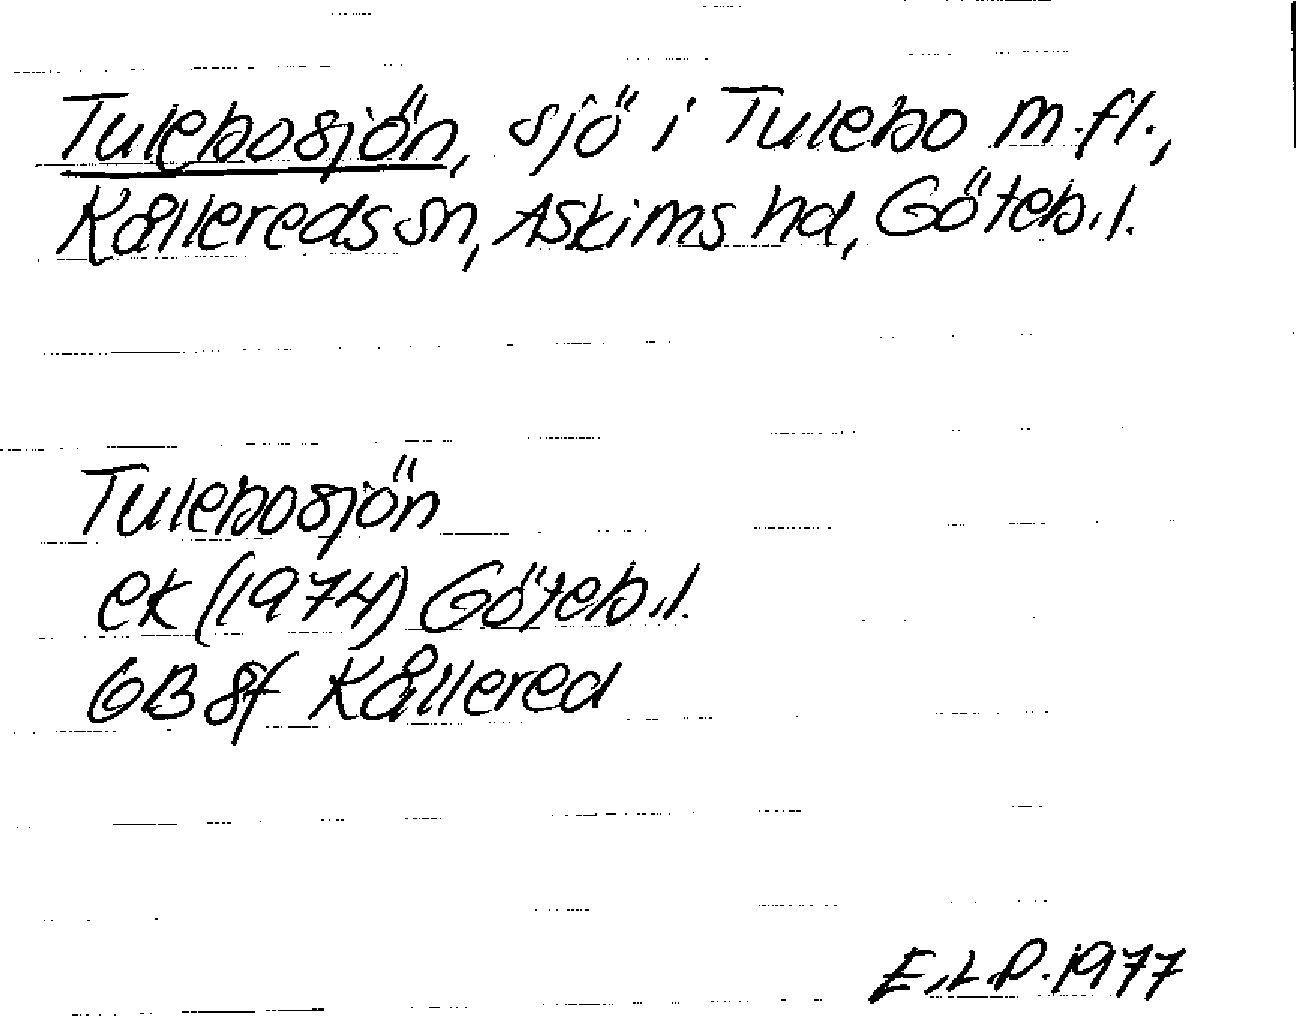 Tulebosjön, sjö i Tulebo m.fl.,
Kållereds sn, Askims hd, Göteb.l.
Tulebosjön
ek (1974) Göteb.l.
GB 8f Kållered
E.L.P. 1977